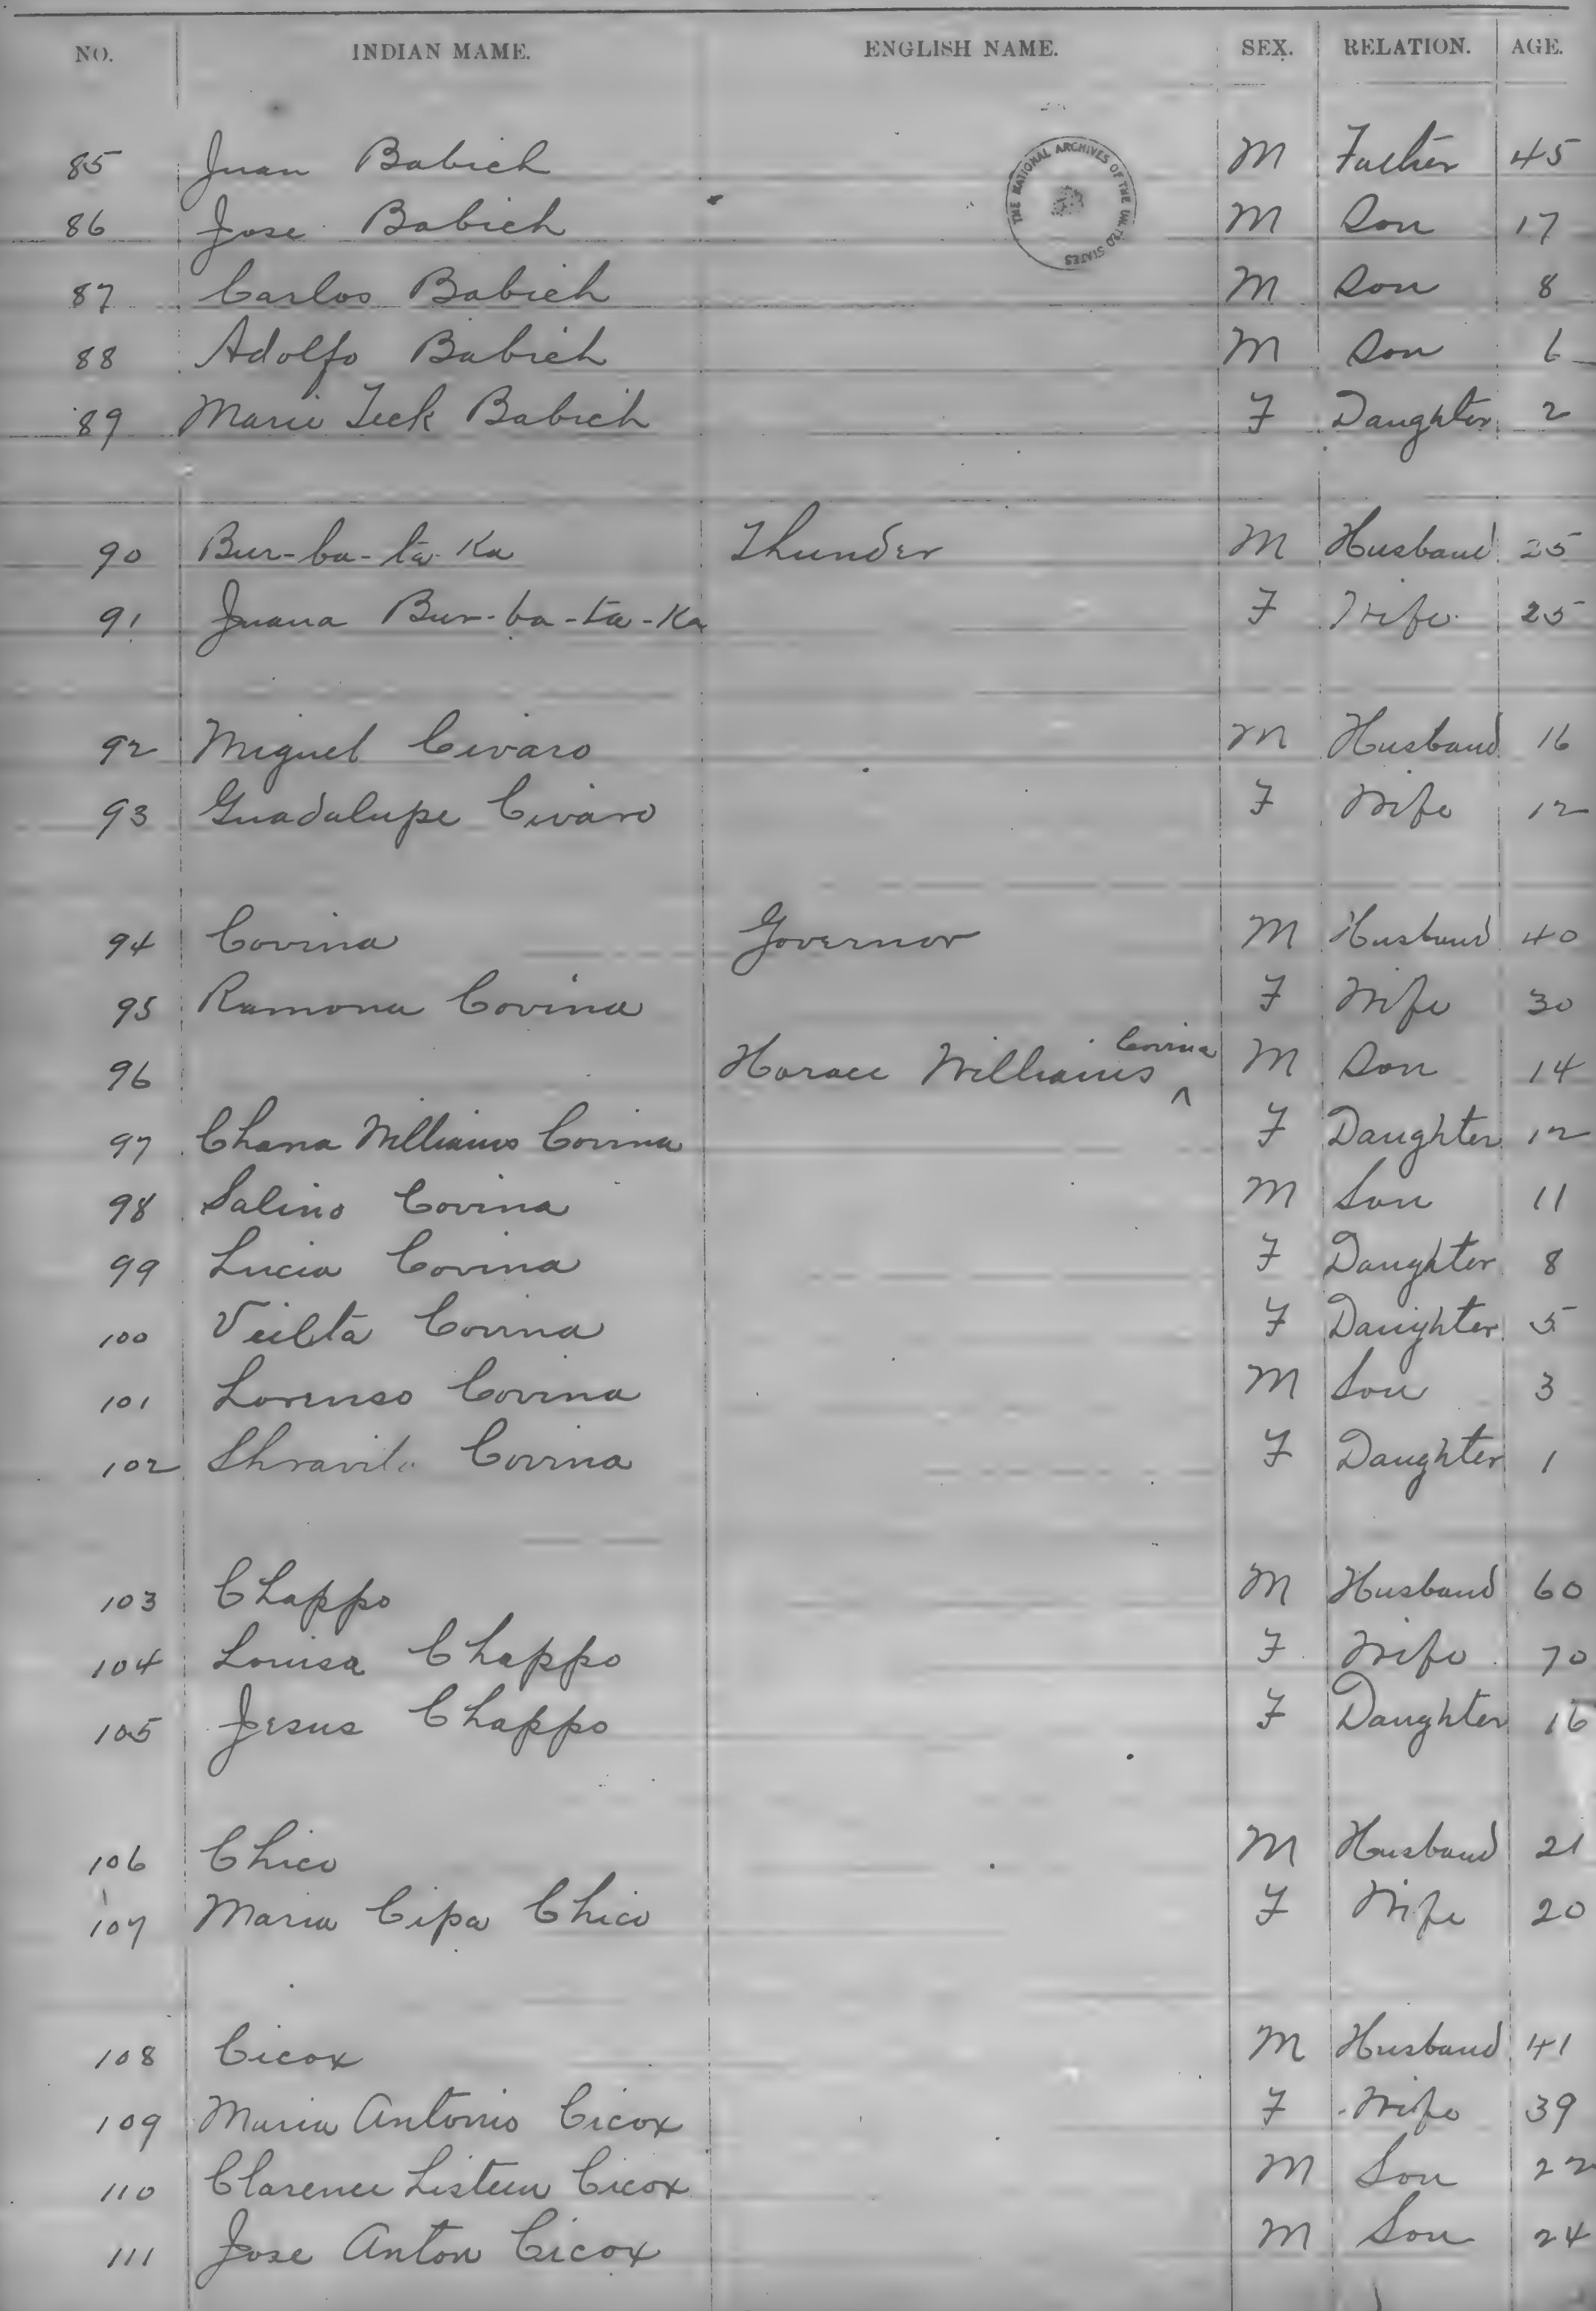 NO. INDIAN MAME. ENGLISH NAME. SEX. RELATION. AGE.
THE NATIONAL ARCHIVES OF THE UNITED STATES
85 Juan Babich M Father 45
86 Jose Babich M Son 17
87 Carlos Babich M Son 8
88 Adolfo Babich M Son 6
89 Marie Teek Babich F Daughter 2
90 Bur-ba-ta-Ka Thunder M Husband 25
91 Juana Bur-ba-ta-Ka F Wife 25
92 Miguel Civaro M Husband 16
93 Guadalupe Civaro F Wife 12
94 Covina Governor M Husband 40
95 Ramona Covina F Wife 30
96 Horace Williams ^ Covina M Son 14
97 Chana Williams Covina F Daughter 12
98 Salino Covina M Son 11
99 Lucia Covina F Daughter 8
100 Covina F Daughter 5
101 Lorenso Covina M Son 3
102 Covina F Daughter 1
103 Chappo M Husband 60
104 Louisa Chappo F Wife 70
105 Jesus Chappo F Daughter 16
106 Chico M Husband 21
107 Maria Cipa Chico F Wife 20
108 Cicox M Husband 41
109 Maria Antonio Cicox F Wife 39
110 Clarence Cicox M Son 22
111 Jose Anton Cicox M Son 24